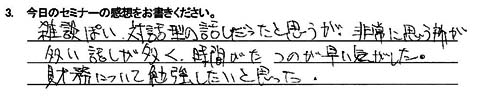 3. 今日のセミナーの感想をお書きください。
雑談ぽい、対話型の話しだったと思うが、非常に思う所が
多い話しが多く、時間がたつのが早い気がした。
財務について勉強したいと思った。